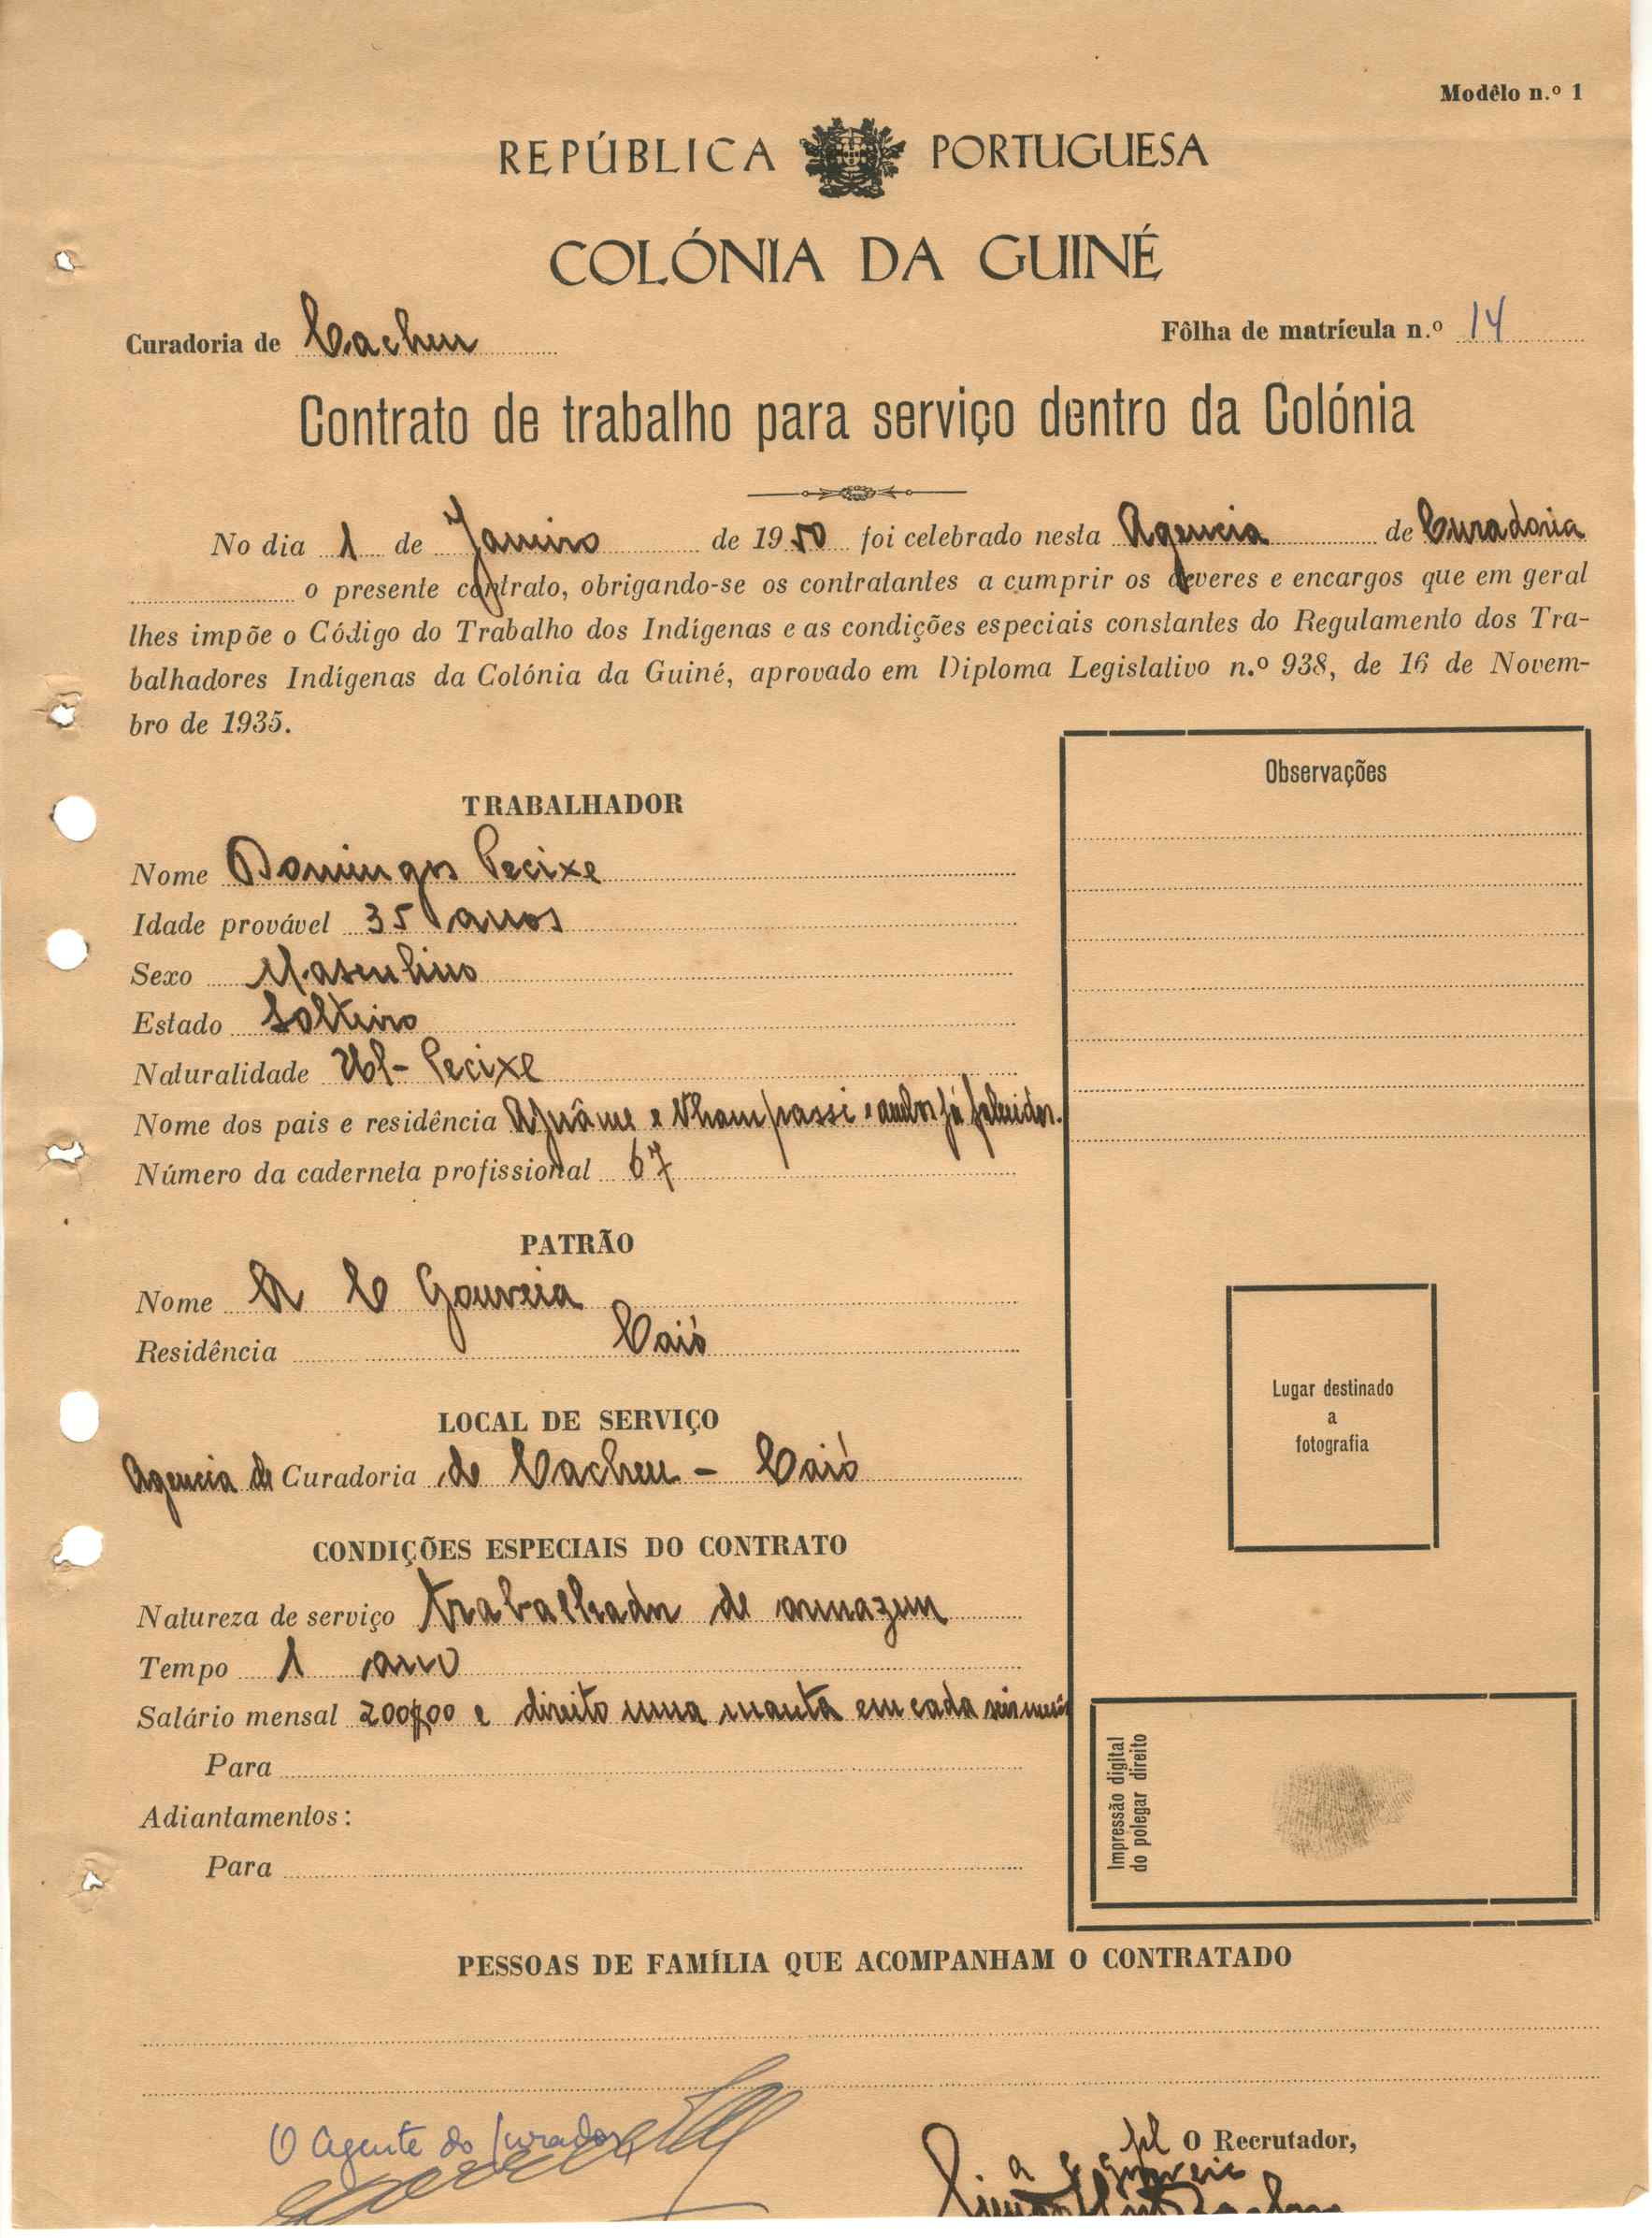 Modêlo n.º 1
REPÚBLICA PORTUGUESA
COLÓNIA DA GUINÉ
Curadoria de Cacheu
Fôlha de matrícula n.º 14
Contrato de trabalho para serviço dentro da Colónia
No dia 1 de Janeiro de 1950 foi celebrado nesta Agencia de Curadoria
o presente contrato, obrigando-se os contratantes a cumprir os deveres e encargos que em geral
lhes impõe o Código do Trabalho dos Indígenas e as condições especiais constantes do Regulamento dos Tra-
balhadores Indígenas da Colónia da Guiné, aprovado em Diploma Legislativo n.º 938, de 16 de Novem-
bro de 1935.
TRABALHADOR
Nome Domingos Pecixe
Idade provável 35 anos
Sexo Masculino
Estado Solteiro
Naturalidade Pecixe
Nome dos pais e residência e ambos já falecidos.
Número da caderneta profissional 67
PATRÃO
Nome A C Gouveia
Residência Caió
LOCAL DE SERVIÇO
Agencia de Curadoria de Cacheu - Caió
CONDIÇÕES ESPECIAIS DO CONTRATO
Natureza de serviço trabalhador de armazem
Tempo 1 ano
Salário mensal 200$00 e direito uma manta em cada seis meses
Para
Adiantamentos:
Para
Observações
Lugar destinado
a
fotografia
Impressão digital
do polegar direito
PESSOAS DE FAMÍLIA QUE ACOMPANHAM O CONTRATADO
O Agente do Curador,
pl O Recrutador,
a c gouveia